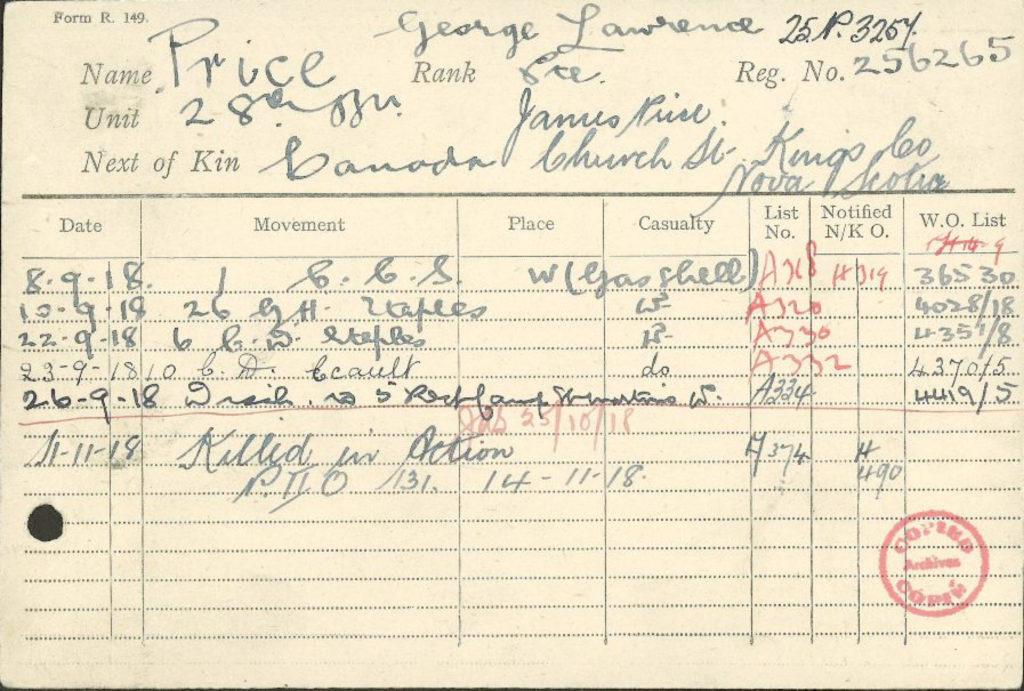 Form R. 149.
George Lawrence 25.P.3257.
Name Price Rank Pte. Reg. No. 256265
Unit 28th Bn. James Price.
Next of Kin Canada Church St. Kings Co
Nova Scotia
Date Movement Place Casualty List No. Notified N/K O. W.O. List
8.9.18. 1 C.C.S. W (Gas Shell) A318 H319 36530
10.9.18 26 G.H. Etaples W A320 4028/18
22.9.18 6 C.D. Etaples W A330 4351/8
23-9-18 10 C.D. Ecault do A332 4370/5
26-9-18 Disch. to 5 Rest Camp St Martins W. A334 4419/5
25/10/18
11-11-18 Killed in Action A374 H490
P.II O 131. 14-11-18.
COPIED
Archives
COPIÉ